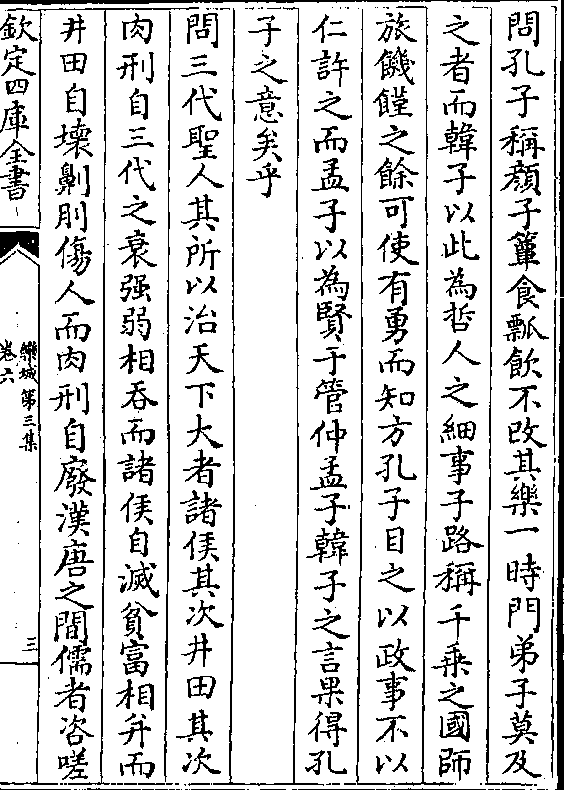 問孔子稱顔子簞食瓢飲不改其樂一時門弟子莫及
之者而韓子以此為哲人之細事子路稱千乘之國師
旅饑饉之餘可使有勇而知方孔子目之以政事不以
仁許之而孟子以為賢于管仲孟子韓子之言果得孔
子之意矣乎
問三代聖人其所以治天下大者諸侯其次井田其次
肉刑自三代之衰强弱相吞而諸侯自滅貧富相并而
井田自壊劓刖傷人而肉刑自廢漢唐之間儒者咨嗟
欽定四庫全書
欒城第三集
卷六
三